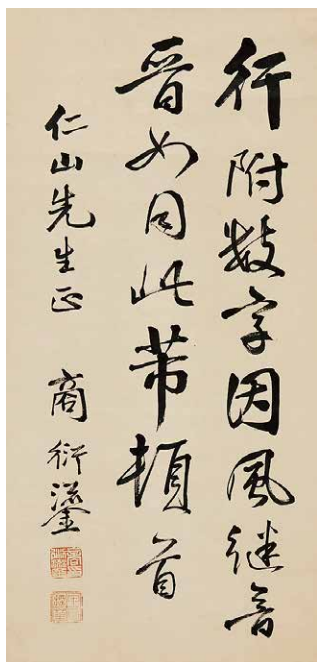 行附數字因風繼音
晉如同此芾頓首
仁山先生正 商衍鎏